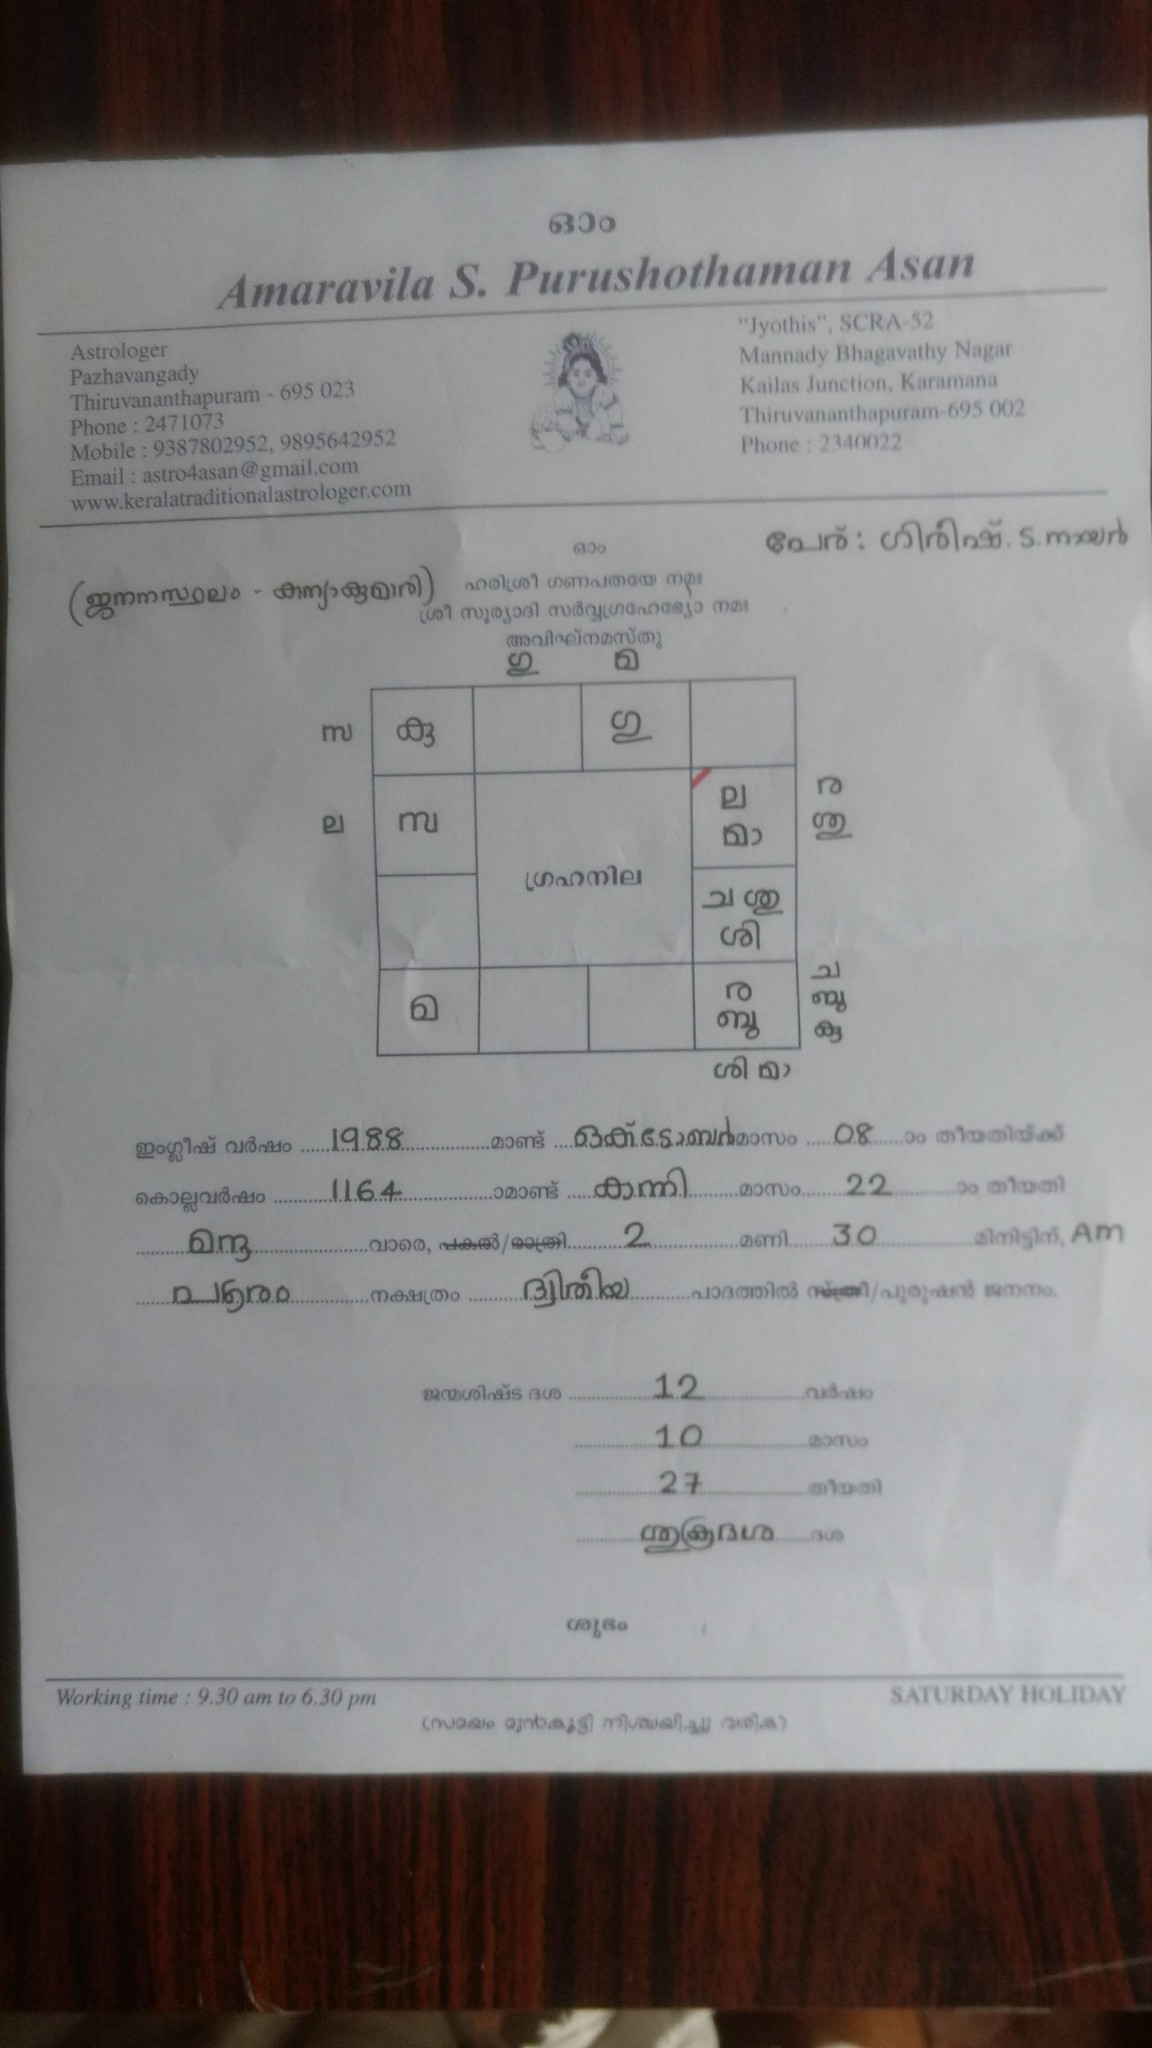 ഓം
Amaravila S. Purushothaman Asan
Astrologer
Pazhavangady
Thiruvananthapuram - 695 023
Phone : 2471073
Mobile : 9387802952, 9895642952
Email : astro4asan@gmail.com
www.keralatraditionalastrologer.com
"Jyothis", SCRA-52
Mannady Bhagavathy Nagar
Kailas Junction, Karamana
Thiruvananthapuram-695 002
Phone : 2340022
പേര്: ഗിരീഷ്. S. നായർ
ഓം
(ജനനസ്ഥലം - കന്യാകുമാരി)
ഹരിശ്രീ ഗണപതയേ നമഃ
ശ്രീ സൂര്യാദി സർവ്വഗ്രഹേഭ്യോ നമഃ
അവിഘ്നമസ്തു
ഗു മ
സ കു ഗു
ല സ ല ര
മാ ശു
ഗ്രഹനില
ച ശു
ശി
മ ര ച
ബു ബു
കു
ശി മാ
ഇംഗ്ലീഷ് വർഷം 1988 മാണ്ട് ഒക്ടോബർ മാസം 08 ാം തീയതിയ്ക്ക്
കൊല്ലവർഷം 1164 ാമാണ്ട് കന്നി മാസം 22 ാം തീയതി
മന്ദ വാരെ, പകൽ/രാത്രി 2 മണി 30 മിനിട്ടിന്, Am
പൂരം നക്ഷത്രം ദ്വിതീയ പാദത്തിൽ സ്ത്രീ/പുരുഷൻ ജനനം.
ജന്മശിഷ്ട ദശ 12 വർഷം
10 മാസം
27 തീയതി
ശുക്രദശ ദശ
ശുഭം
Working time : 9.30 am to 6.30 pm
SATURDAY HOLIDAY
(സമയം മുൻകൂട്ടി നിശ്ചയിച്ചു വരിക)